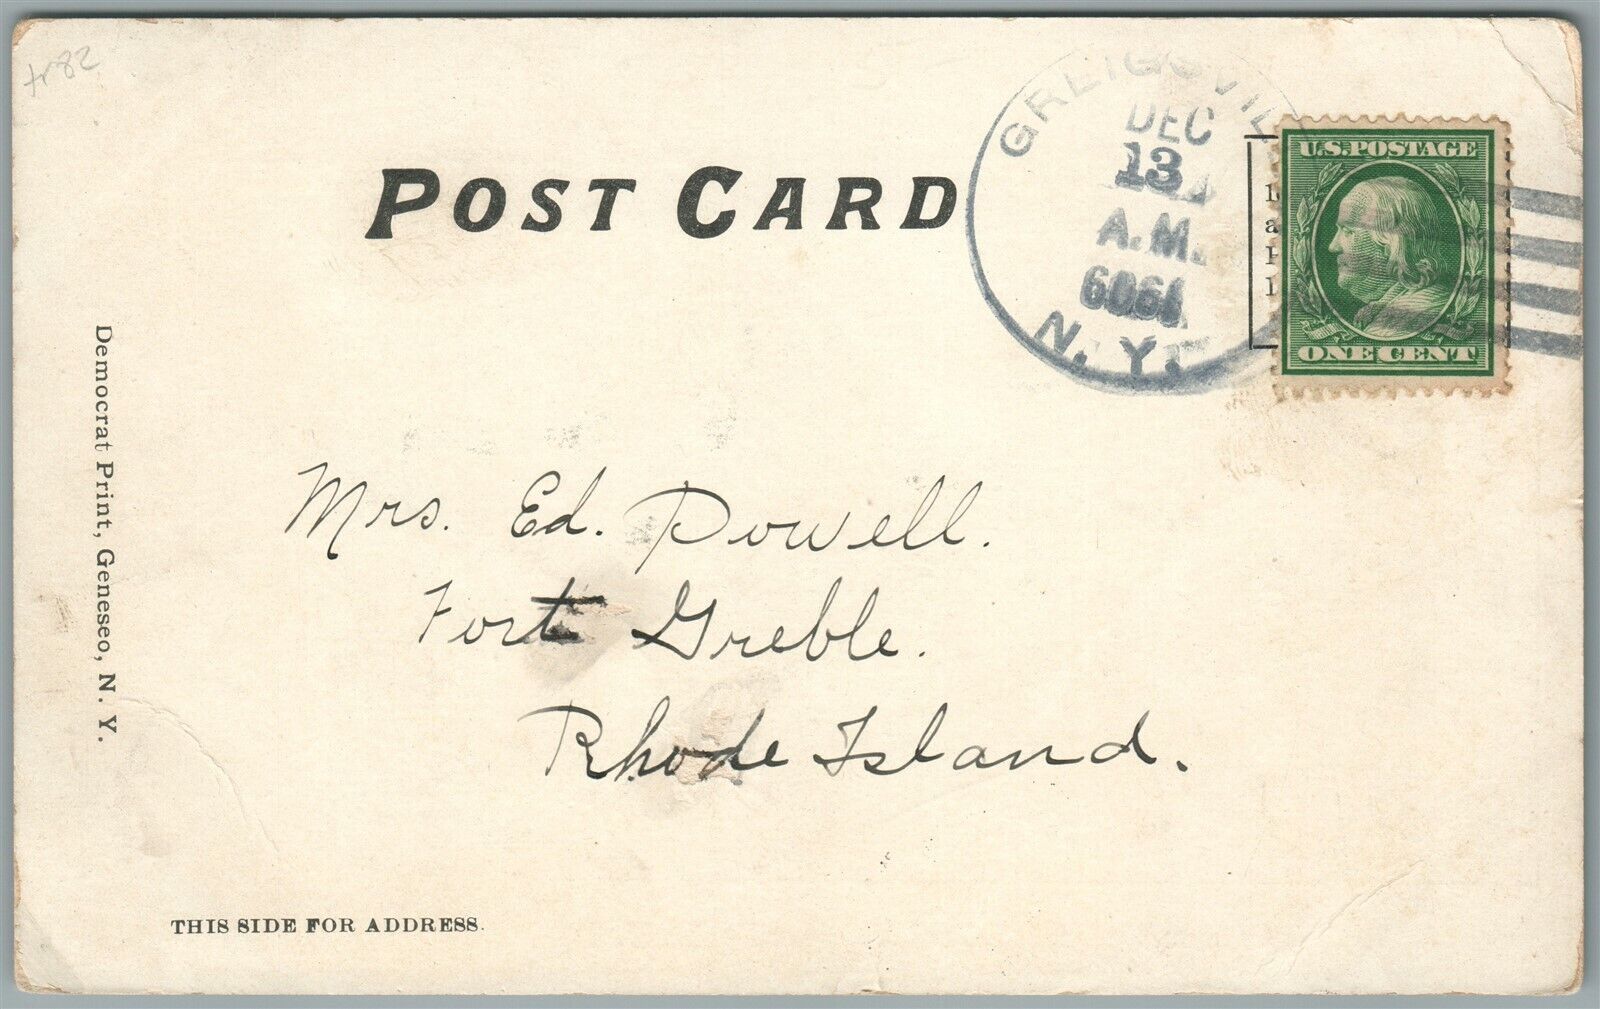 POST CARD
GREIGSVIL
DEC
13
A.M.
N.Y.
U.S. POSTAGE
ONE CENT
Democrat Print, Geneseo, N. Y.
Mrs. Ed. Powell.
Fort Greble.
Rhode Island.
THIS SIDE FOR ADDRESS.